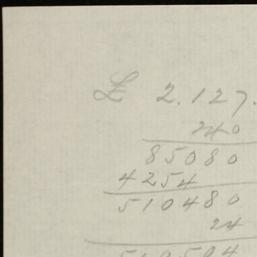 £ 2.127.
240
85080
4254
510480
24
510504